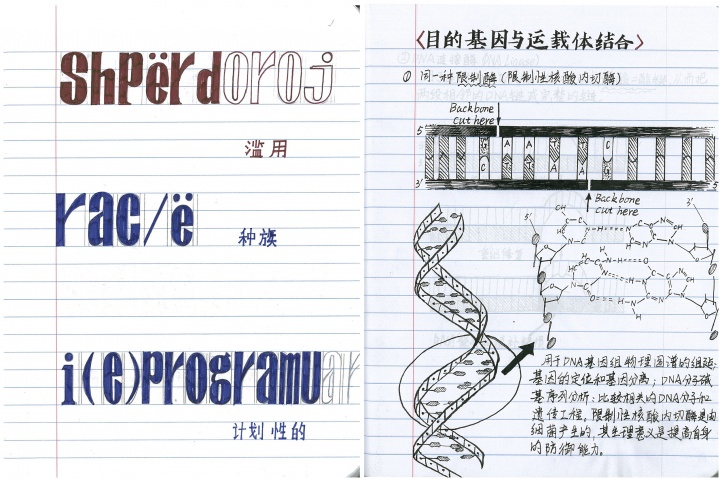 Shpërdoroj
滥用
rac/ë
种族
i(e)programuar
计划性的
〈目的基因与运载体结合〉
① 同一种限制酶(限制性核酸内切酶)
Backbone
cut here
5'
G A A T T C
C T T A A G
3'
Backbone
cut here
5'
3'
用于DNA基因组物理图谱的组建;
基因的定位和基因分离;DNA分子碱
基序列分析;比较相关的DNA分子和
遗传工程。限制性核酸内切酶是由
细菌产生的,其生理意义是提高自身
的防御能力。